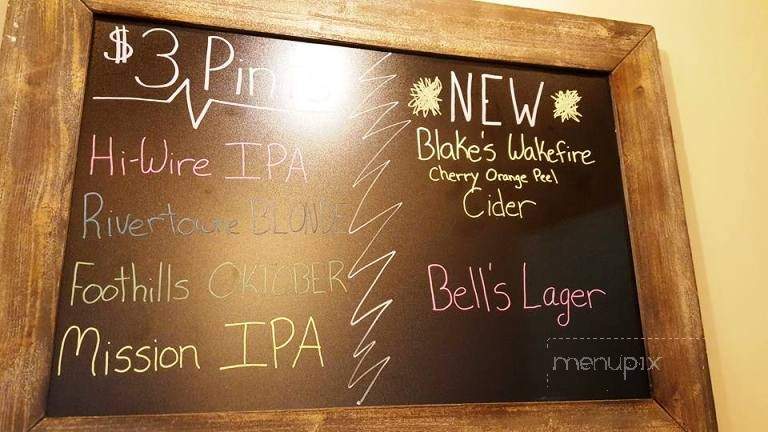 $3 Pints
Hi-Wire IPA
Rivertowne BLONDE
Foothills OKTOBER
Mission IPA
NEW
Blake's Wakefire
Cherry Orange Peel
Cider
Bell's Lager
menupix